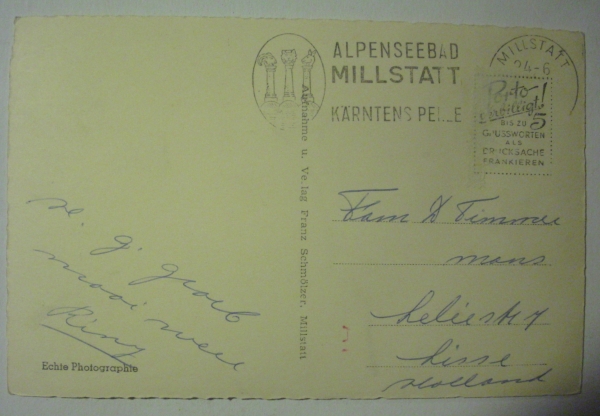 ALPENSEEBAD
MILLSTATT
KÄRNTENS PERLE
MILLSTATT
24-6
Porto-
ermäßigt!
BIS ZU 5
GRUSSWORTEN
ALS
DRUCKSACHE
FRANKIEREN
Aufnahme u. Verlag Franz Schmölzer, Millstatt
v. g. groet
mooi weer
Echte Photographie
Fam D Timmer
mans
Lisse
Holland